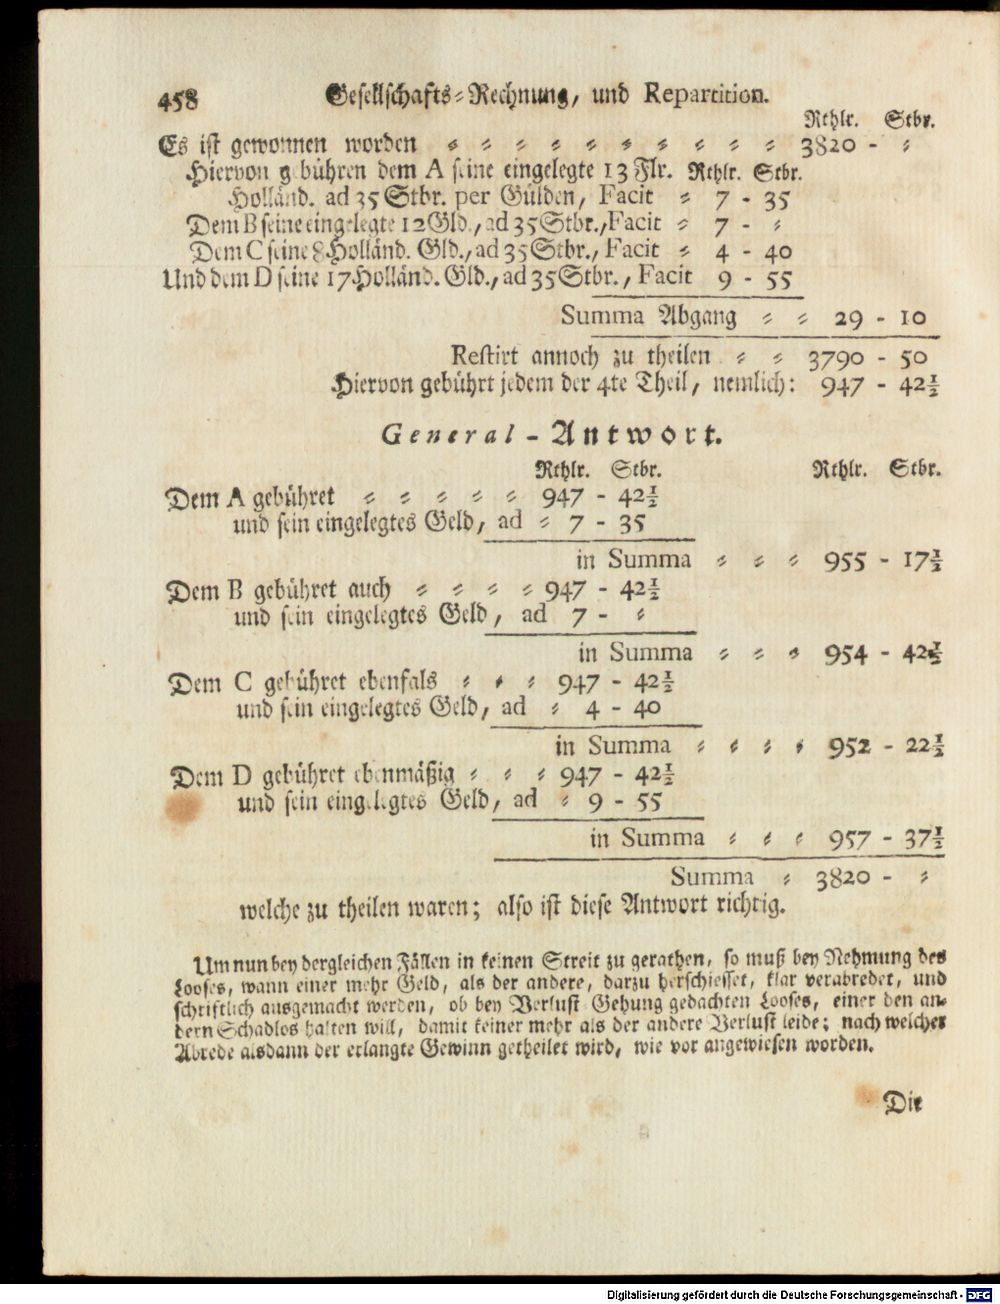 458 Gesellschafts-Rechnung, und Repartition.
Rthlr. Stbr.
Es ist gewonnen worden = = = = = = = = = = 3820 - =
Hiervon gebühren dem A seine eingelegte 13 Flr. Rthlr. Stbr.
Holländ. ad 35 Stbr. per Gülden, Facit = 7 - 35
Dem B seine eingelegte 12 Gld., ad 35 Stbr., Facit = 7 - =
Dem C seine 8 Holländ. Gld., ad 35 Stbr., Facit = 4 - 40
Und dem D seine 17 Holländ. Gld., ad 35 Stbr., Facit 9 - 55
Summa Abgang = = 29 - 10
Restirt annoch zu theilen = = 3790 - 50
Hiervon gebührt jedem der 4te Theil, nemlich: 947 - 42½
General-Antwort.
Rthlr. Stbr. Rthlr. Stbr.
Dem A gebühret = = = = = 947 - 42½
und sein eingelegtes Geld, ad = 7 - 35
in Summa = = = 955 - 17½
Dem B gebühret auch = = = = 947 - 42½
und sein eingelegtes Geld, ad 7 - =
in Summa = = = 954 - 42½
Dem C gebühret ebenfals = = = 947 - 42½
und sein eingelegtes Geld, ad = 4 - 40
in Summa = = = = 952 - 22½
Dem D gebühret ebenmäßig = = = 947 - 42½
und sein eingelegtes Geld, ad = 9 - 55
in Summa = = = 957 - 37½
Summa = 3820 - =
welche zu theilen waren; also ist diese Antwort richtig.
Um nun bey dergleichen Fällen in keinen Streit zu gerathen, so muß bey Nehmung des
Looses, wann einer mehr Geld, als der andere, darzu herschiesset, klar verabredet, und
schriftlich ausgemacht werden, ob bey Verlust Gehung gedachten Looses, einer den an-
dern Schadlos halten will, damit keiner mehr als der andere Verlust leide; nach welcher
Abrede alsdann der erlangte Gewinn getheilet wird, wie vor angewiesen worden.
Die
Digitalisierung gefördert durch die Deutsche Forschungsgemeinschaft - DFG